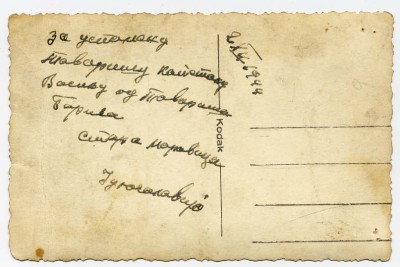 За успомену
Товаришу капетану
Васиљу од Товариша
Борива
Стара Моравица
Југославија
XII 1944
Kodak